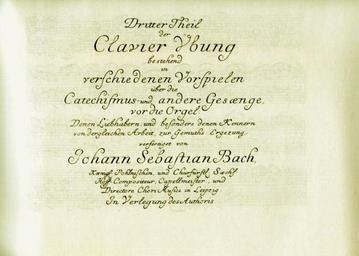 Dritter Theil
der
Clavier Ubung
bestehend
in
verschiedenen Vorspielen
über die
Catechismus-und andere Gesænge,
vor die Orgel:
Denen Liebhabern, und besonders denen Kennern
von dergleichen Arbeit, zur Gemüths Ergezung
verfertiget von
Johann Sebastian Bach,
Kœnigl. Pohlnischen, und Churfürstl. Sæchs.
Hoff-Compositeur, Capellmeister, und
Directore Chori Musici in Leipzig.
In Verlegung des Authoris.